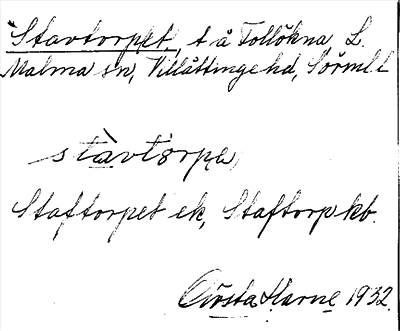 Stavtorpet, t å Tollökna, L.
Malma sn, Villåttinge hd, Sörml l
stàvtòrpe,
Staftorpet ek, Staftorp kb.
Gösta Harne 1932.